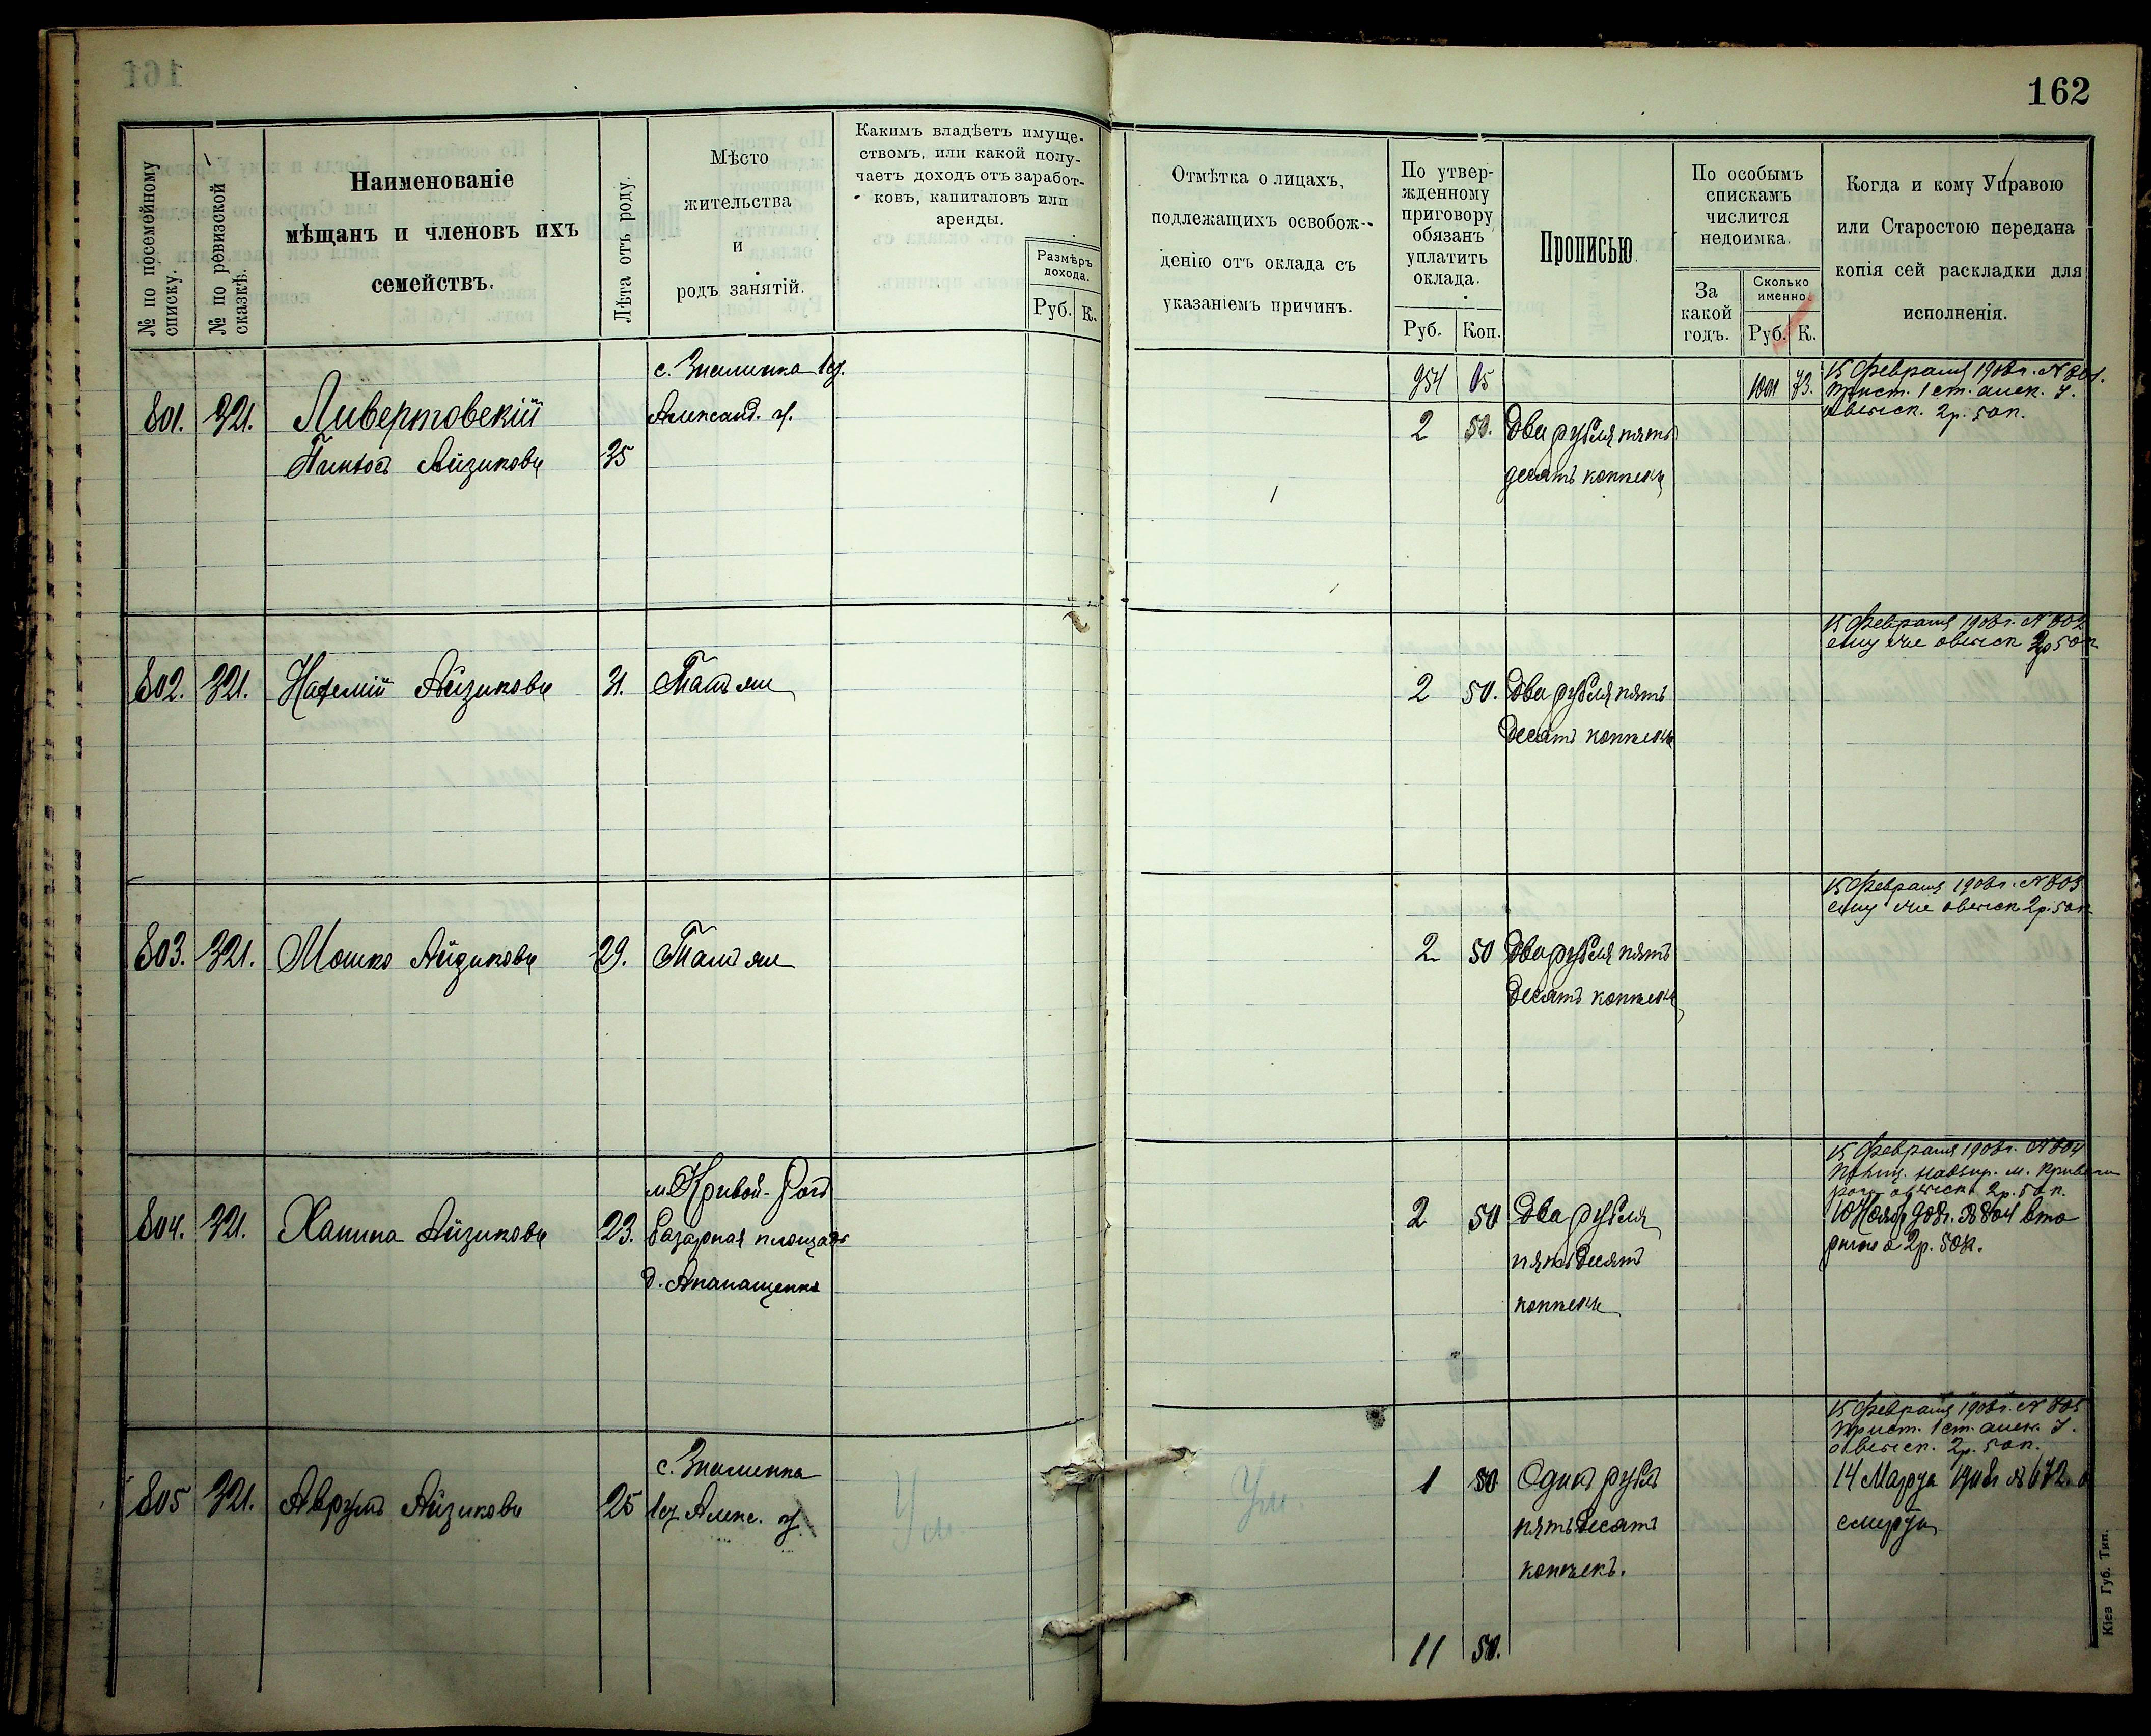 162
№ по посемейному
списку.
№ по ревизской
сказкѣ.
Наименованіе
мѣщанъ и членовъ ихъ
семействъ.
Лѣта отъ роду.
Мѣсто
жительства
и
родъ занятій.
Какимъ владѣетъ имуще-
ствомъ, или какой полу-
чаетъ доходъ отъ заработ-
ковъ, капиталовъ или
аренды.
Размѣръ
дохода.
Руб. К.
Отмѣтка о лицахъ,
подлежащихъ освобож-
денію отъ оклада съ
указаніемъ причинъ.
По утвер-
жденному
приговору
обязанъ
уплатить
оклада.
Руб. Коп.
Прописью.
По особымъ
спискамъ
числится
недоимка.
За
какой
годъ.
Сколько
именно.
Руб. К.
Когда и кому Управою
или Старостою передана
копія сей раскладки для
исполненія.
с. Знаменка 1 ч.
954 05
73.
15 Февраля 1908 г. № 801.
801. 321. Ливертовскій
Александ. у.
2 50. Два рубля пять
Прист. 1 ст. алек. у.
2 р. 50 к.
Пинхосъ Айзиковъ 35
десятъ копѣекъ
15 Февраля 1908 г. № 802
ему же 2 р 50 к
802. 321. Айзиковъ 31. Тамъ же
2 50. Два рубля пять
десятъ копѣекъ
15 Февраля 1908 г. № 803
ему же 2 р. 50 к
803. 321. Мошко Айзиковъ 29. Тамъ же
2 50 Два рубля пять
десятъ копѣекъ
15 Февраля 1908 г. № 804
м. Кривой-Рогъ
2 р. 50 к.
804. 321. Ханина Айзиковъ 23. Базарная площадь
2 50 Два рубля
10 Нояб 908 г. № 804 вто
д. Апанащенко
пятьдесятъ
рично 2 р. 50 к.
копѣекъ
15 Февраля 1908 г. № 805
Прист. 1 ст. алек. у.
2 р. 50 к.
с. Знаменка
805 321. Аврумъ Айзиковъ 25 1 ч Алекс. у.
Ум.
Ум.
1 50 Одинъ рубль
14 Марта № 672 о
пятьдесятъ
смерти
копѣекъ.
11 50.
Кіев Губ. Тип.